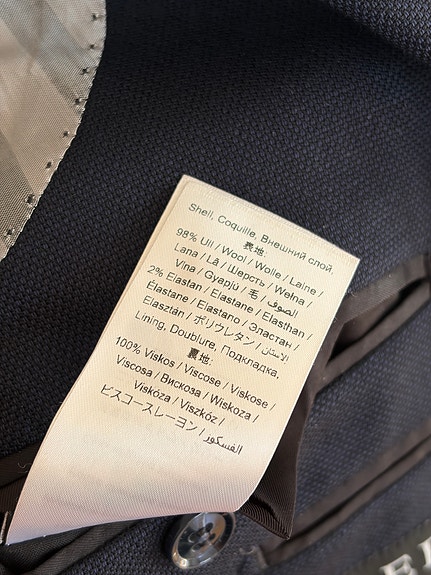 Shell, Coquille, Внешний слой,
表地:
98% Ull / Wool / Wolle / Laine /
Lana / Lã / Шерсть / Wełna /
Vlna / Gyapjú / 毛 / الصوف
2% Elastan / Elastane / Elasthan /
Élastane / Elastano / Эластан /
Elasztán / ポリウレタン /
Lining, Doublure, Подкладка,
裏地:
100% Viskos / Viscose / Viskose /
Viscosa / Вискоза / Wiskoza /
Viskóza / Viszkóz /
ビスコースレーヨン / الفسكور